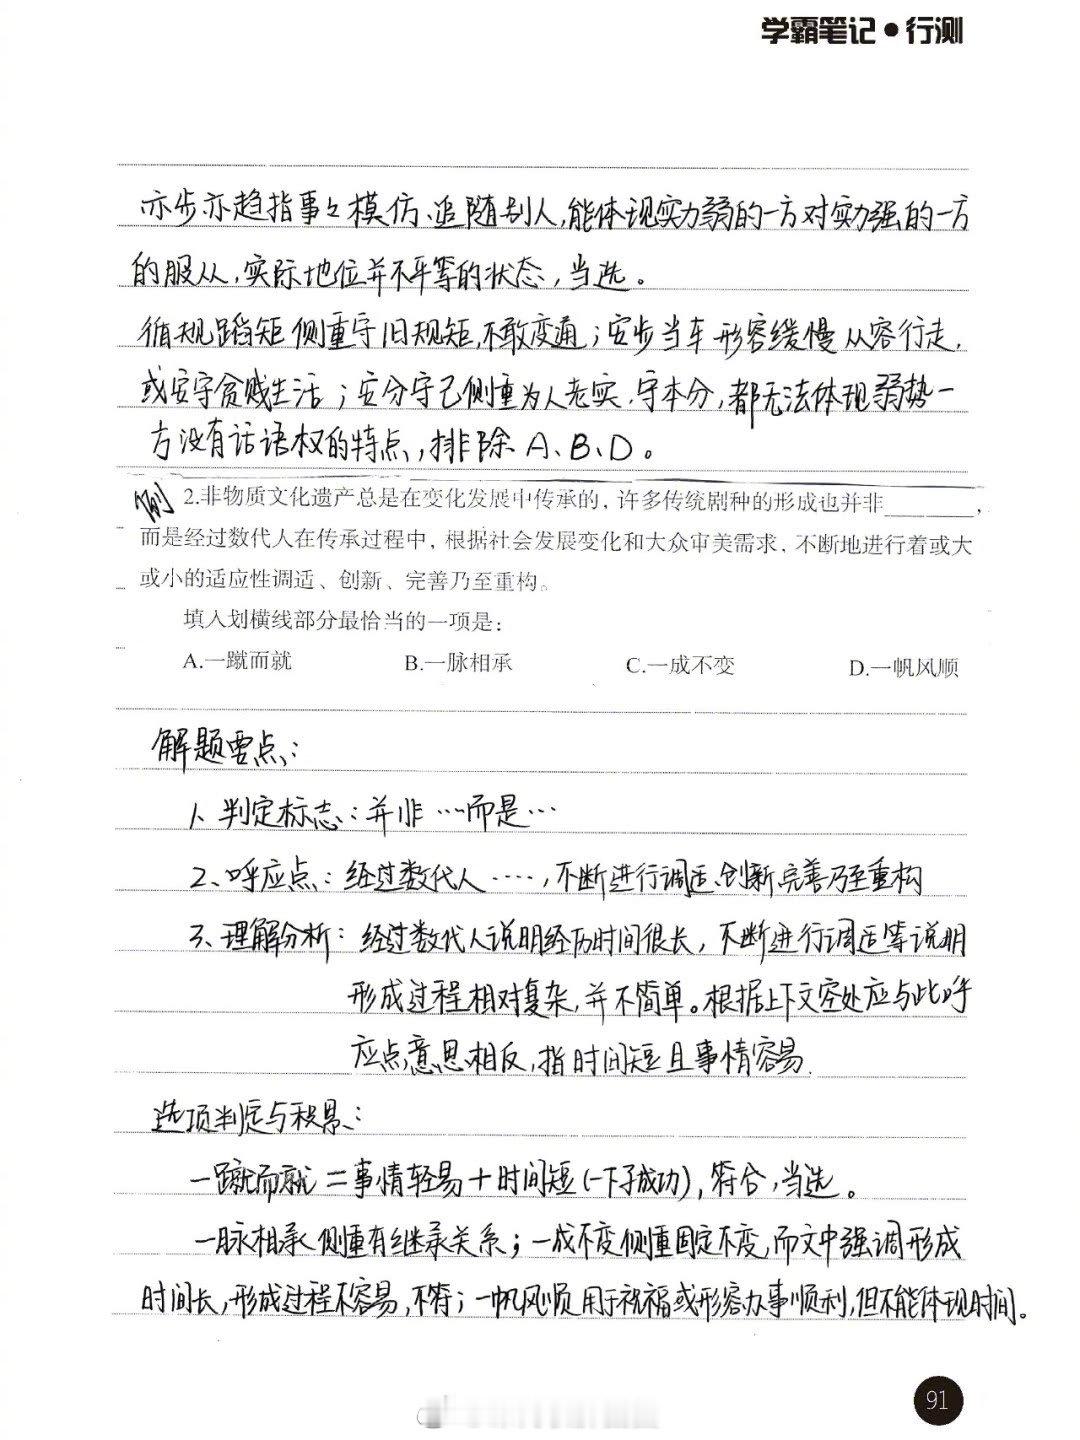 学霸笔记●行测
亦步亦趋指事々模仿、追随别人,能体现实力弱的一方对实力强的一方
的服从,实际地位并不平等的状态,当选。
循规蹈矩侧重守旧规矩,不敢变通;安步当车形容缓慢从容行走,
或安守贫贱生活;安分守己侧重为人老实、守本分,都无法体现弱势一
方没有话语权的特点,排除A、B、D。
例 2.非物质文化遗产总是在变化发展中传承的,许多传统剧种的形成也并非________,
而是经过数代人在传承过程中,根据社会发展变化和大众审美需求,不断地进行着或大
或小的适应性调适、创新、完善乃至重构。
填入划横线部分最恰当的一项是:
A.一蹴而就 B.一脉相承 C.一成不变 D.一帆风顺
解题要点:
1、判定标志:并非…而是…
2、呼应点:经过数代人……,不断进行调适、创新、完善乃至重构
3、理解分析:经过数代人说明经历时间很长,不断进行调适等说明
形成过程相对复杂,并不简单。根据上下文空处应与此呼
应点意思相反,指时间短且事情容易.
选项判定与积累:
一蹴而就=事情轻易+时间短(一下子成功),符合,当选。
一脉相承侧重有继承关系;一成不变侧重固定不变,而文中强调形成
时间长,形成过程不容易,不符;一帆风顺用于祝福或形容办事顺利,但不能体现时间。
91